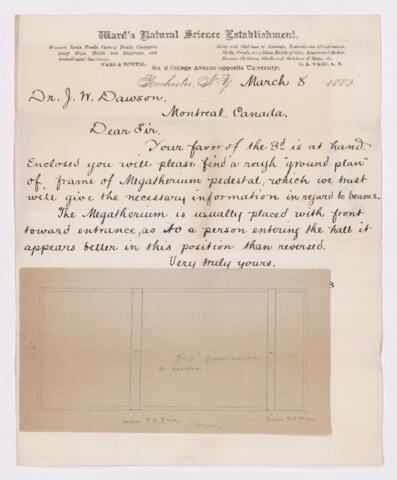 Ward's Natural Science Establishment,
Minerals, Rocks, Fossils, Casts of Fossils, Geological
Relief Maps, Models and Diagrams, and
Archæological Specimens.
WARD & HOWELL.
Skins and Skeletons of Animals, Invertebrates (Crustaceans,
Shells, Corals, etc.), Glass Models of Invertebrates, Anatomical Models,
Human Skeletons, Skulls and Skeletons of Races, etc.
H. A. WARD, A. M.
No. 2 College Avenue (opposite University),
Rochester, N.Y. March 8 1882.
Dr. J. W. Dawson,
Montreal, Canada,
Dear Sir.
Your favor of the 3d is at hand.
Enclosed you will please find a rough "ground plan"
of frame of Megatherium pedestal, which we trust
will give the necessary information in regard to beams.
The Megatherium is usually placed with front
toward entrance, as to a person entering the hall it
appears better in this position than reversed.
Very truly yours.
from centre
to centre
(Over)